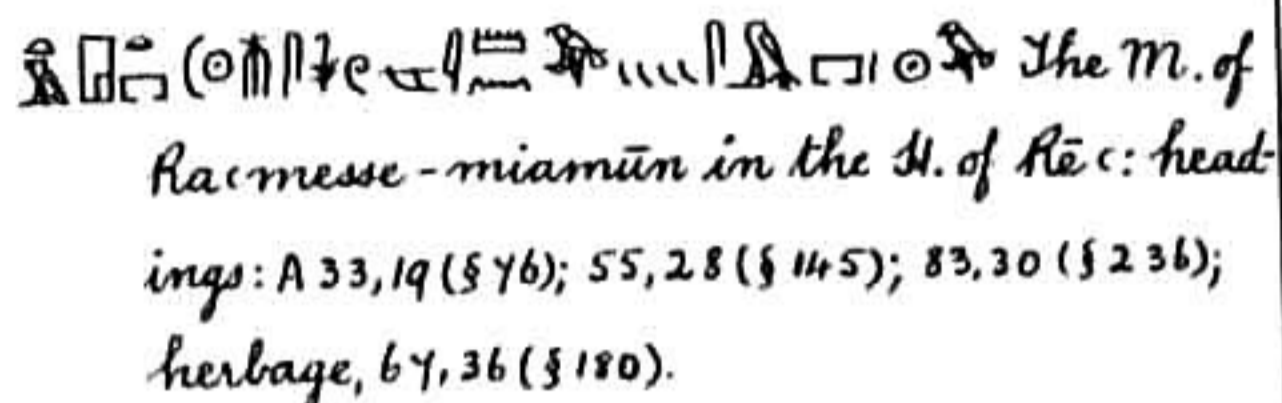 The M. of
Racmesse-miamūn in the H. of Rēc: head-
ings: A 33,19 (§ 76); 55,28 (§ 145); 83,30 (§ 236);
herbage, 67,36 (§ 180).